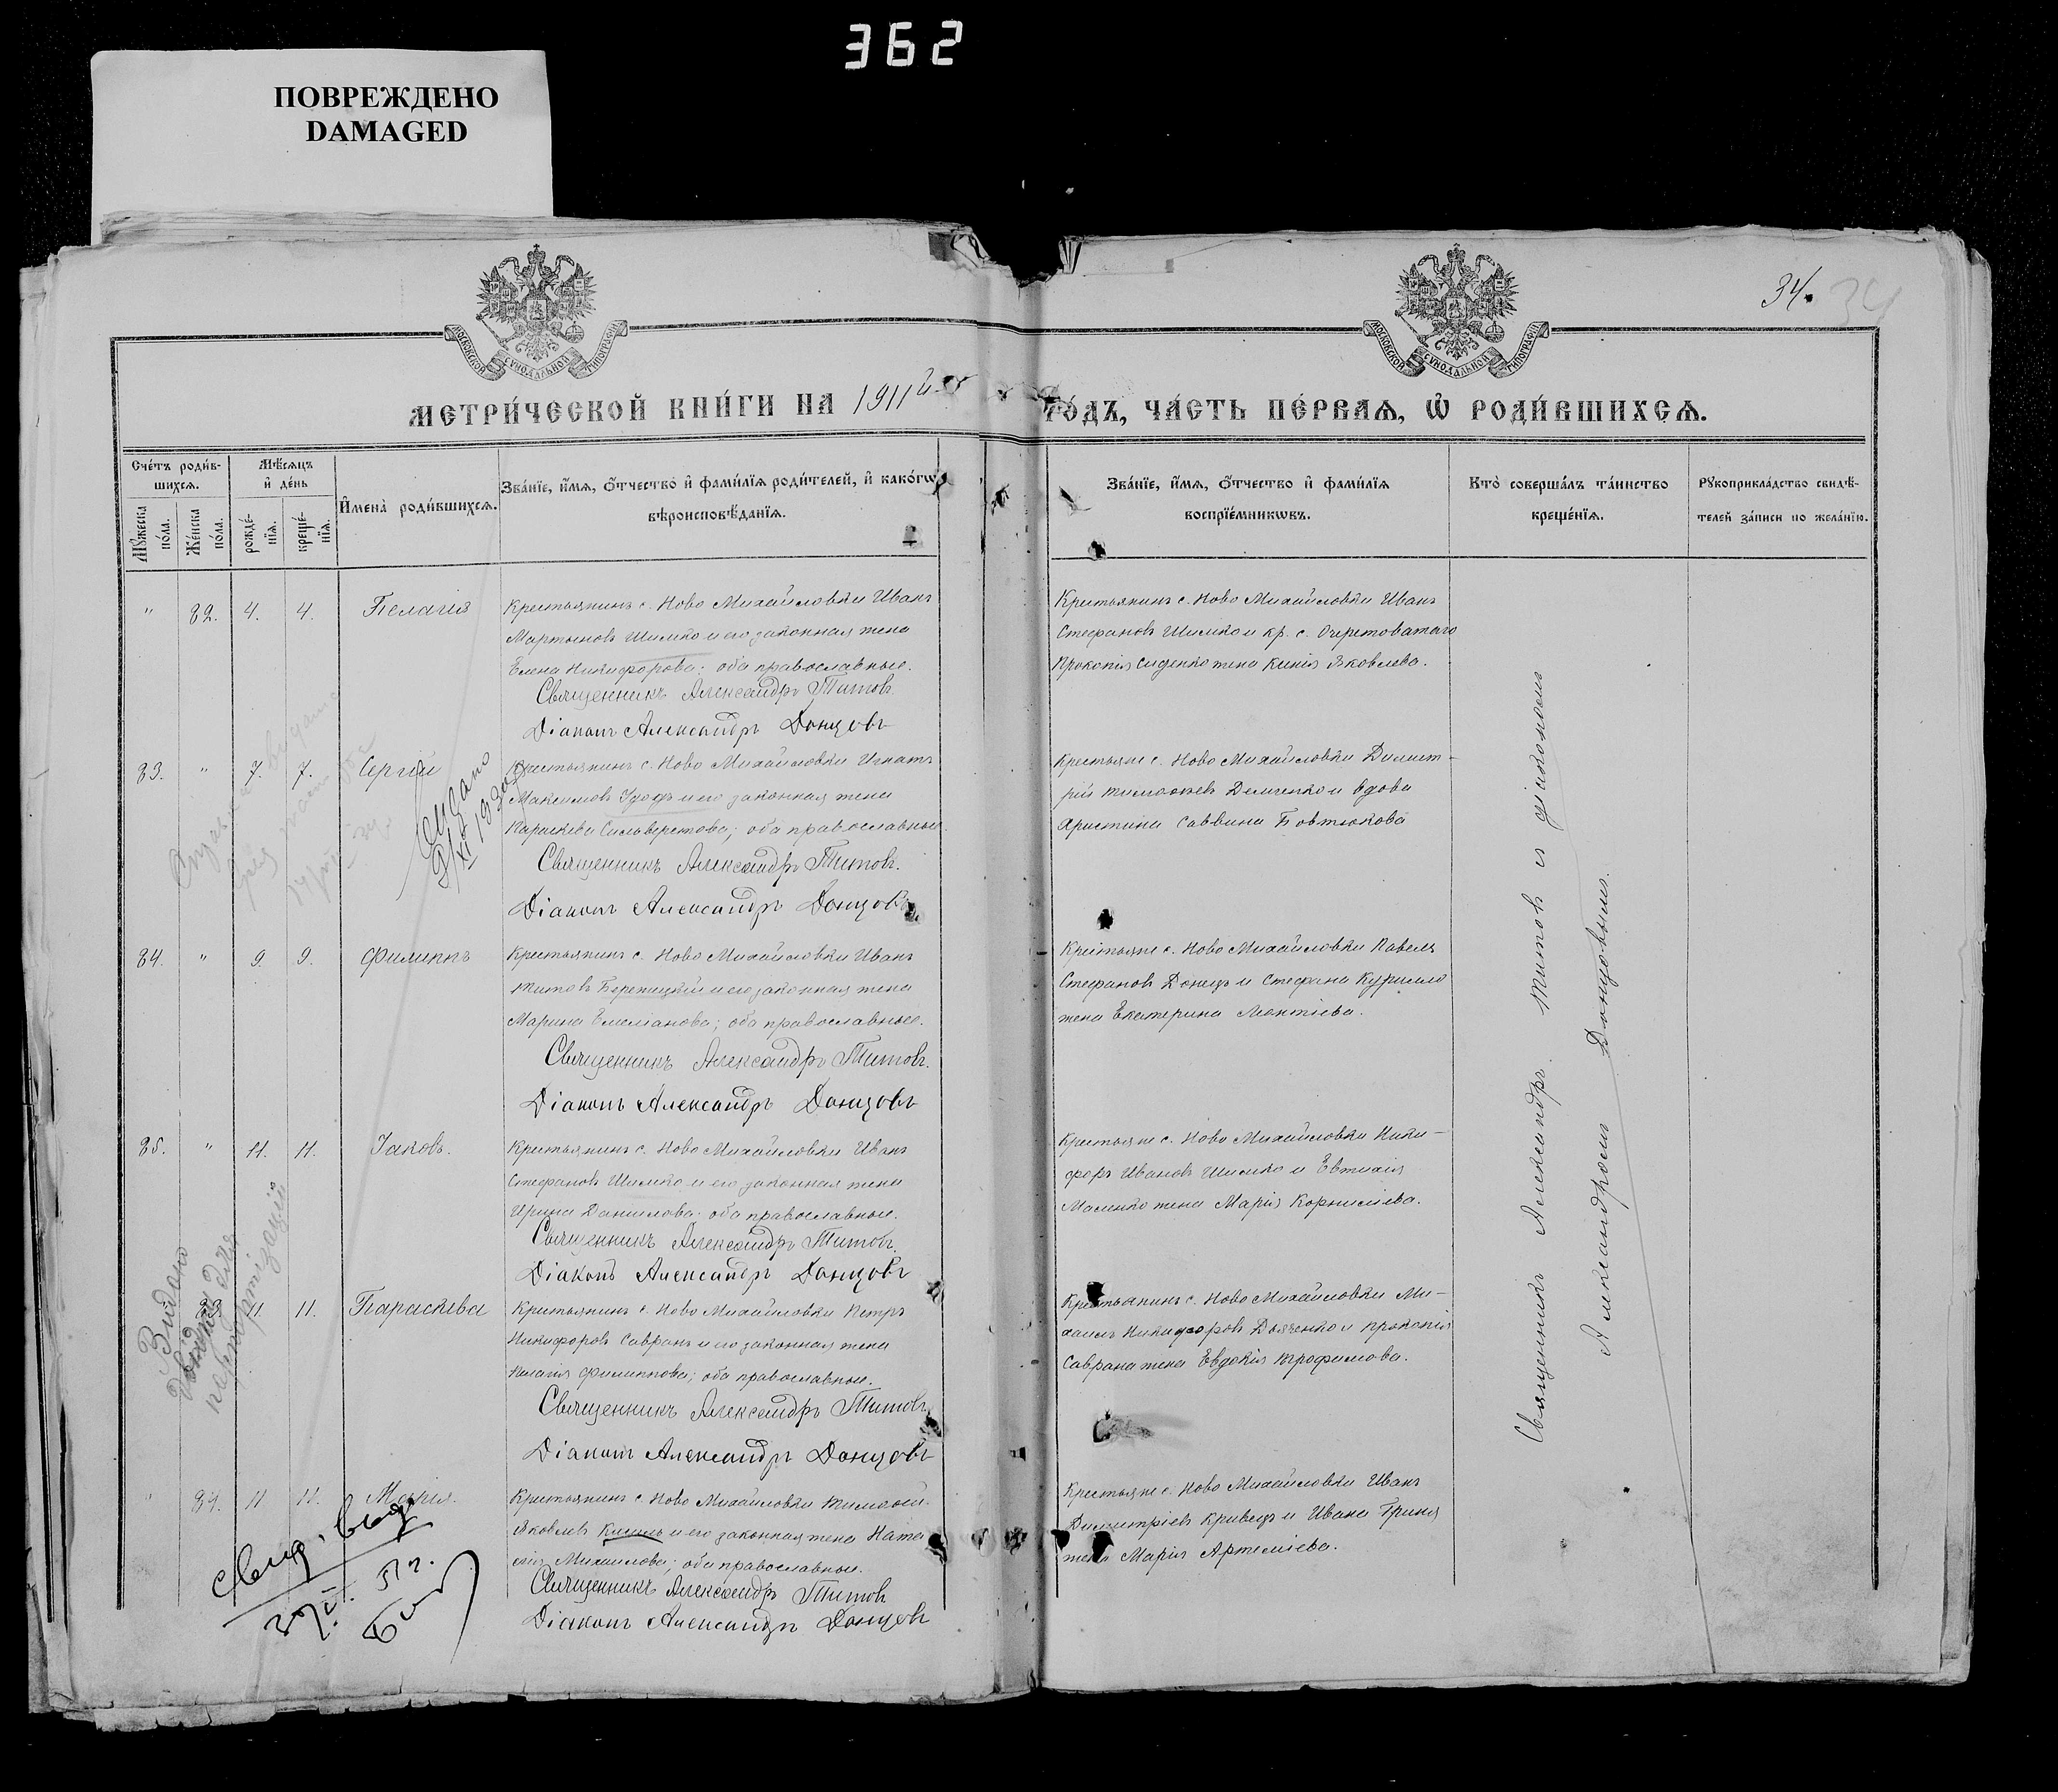 362
ПОВРЕЖДЕНО
DAMAGED
МОСКОВСКОЙ СѴНОДАЛЬНОЙ ТИПОГРАФІИ
МОСКОВСКОЙ СѴНОДАЛЬНОЙ ТИПОГРАФІИ
34. 34
МЕТРИ́ЧЕСКОЙ КНИ́ГИ НА 1911й
ГО́ДЪ, ЧА́СТЬ ПЕ́РВАѦ, Ѡ҆ РОДИ́ВШИХСѦ.
Сче́тъ роди́в-
шихсѧ.
Мѣ́сѧцъ
и҆ де́нь
Мꙋ́жеска по́ла.
Же́нска по́ла.
рожде́-нїѧ.
креще́-нїѧ.
И҆мена̀ роди́вшихсѧ.
Зва́нїе, и҆́мѧ, ѻ҆́тчество и҆ фами́лїѧ роди́телей, и҆ како́гѡ
вѣроисповѣ́данїѧ.
Зва́нїе, и҆́мѧ, ѻ҆́тчество и҆ фами́лїѧ
воспрїе́мникѡвъ.
Кто̀ соверша́лъ та́инство
креще́нїѧ.
Рꙋкоприкла́дство свидѣ́-
телей за́писи по жела́нїю.
" 82. 4. 4. Пелагія
Крестьянинъ с. Ново Михайловки Иванъ
Мартыновъ Шимко и его законная жена
Елена Никифорова; оба православные.
Священникъ Александръ Титовъ.
Діаконъ Александръ Донцовъ
Крестьянинъ с. Ново Михайловки Иванъ
Стефановъ Шимко и кр. с. Очеретоватаго
Прокопія Сиденко жена Ксенія Яковлева.
83. " 7. 7. Сергій
Крестьянинъ с. Ново Михайловки Игнатъ
Максимовъ Удодъ и его законная жена
Параскева Сильверстова; оба православные.
Священникъ Александръ Титовъ.
Діаконъ Александръ Донцовъ
Крестьяне с. Ново Михайловки Димит-
рій Тимофеевъ Демченко и вдова
Христина Саввина Бовтюкова
84. " 9. 9. Филиппъ
Крестьянинъ с. Ново Михайловки Иванъ
Титовъ Бережецкій и его законная жена
Марина Емелианова; оба православные.
Священникъ Александръ Титовъ.
Діаконъ Александръ Донцовъ
Крестьяне с. Ново Михайловки Павелъ
Стефановъ Донецъ и Стефана Курилло
жена Екатерина Леонтіева.
85. " 11. 11. Іаковъ.
Крестьянинъ с. Ново Михайловки Иванъ
Стефановъ Шимко и его законная жена
Ирина Данилова; оба православные.
Священникъ Александръ Титовъ.
Діаконъ Александръ Донцовъ
Крестьяне с. Ново Михайловки Ники-
форъ Ивановъ Шимко и Евтихія
Маленко жена Марія Корнилиева.
11. 11. Параскева
Крестьянинъ с. Ново Михайловки Петръ
Никифоровъ Савранъ и его законная жена
Пелагія Филиппова; оба православные.
Священникъ Александръ Титовъ
Діаконъ Александръ Донцовъ
Крестьянинъ с. Ново Михайловки Ми-
хаилъ Никифоровъ Дьяченко и Прокопія
Саврана жена Евдокія Трофимова.
" 87. 11 11. Марія.
Крестьянинъ с. Ново Михайловки Тимофей
Яковлевъ Кисиль и его законная жена Ната
лія Михайлова; оба православные.
Священникъ Александръ Титовъ
Діаконъ Александръ Донцовъ
Крестьяне с. Ново Михайловки Иванъ
Димитріевъ Кривецъ и Ивана Гриня
жена Марія Артеміева.
Священникъ Александръ Титовъ и діакономъ
Александромъ Донцовымъ.
Видано
довідку для
паспортізації
Свид. выд.